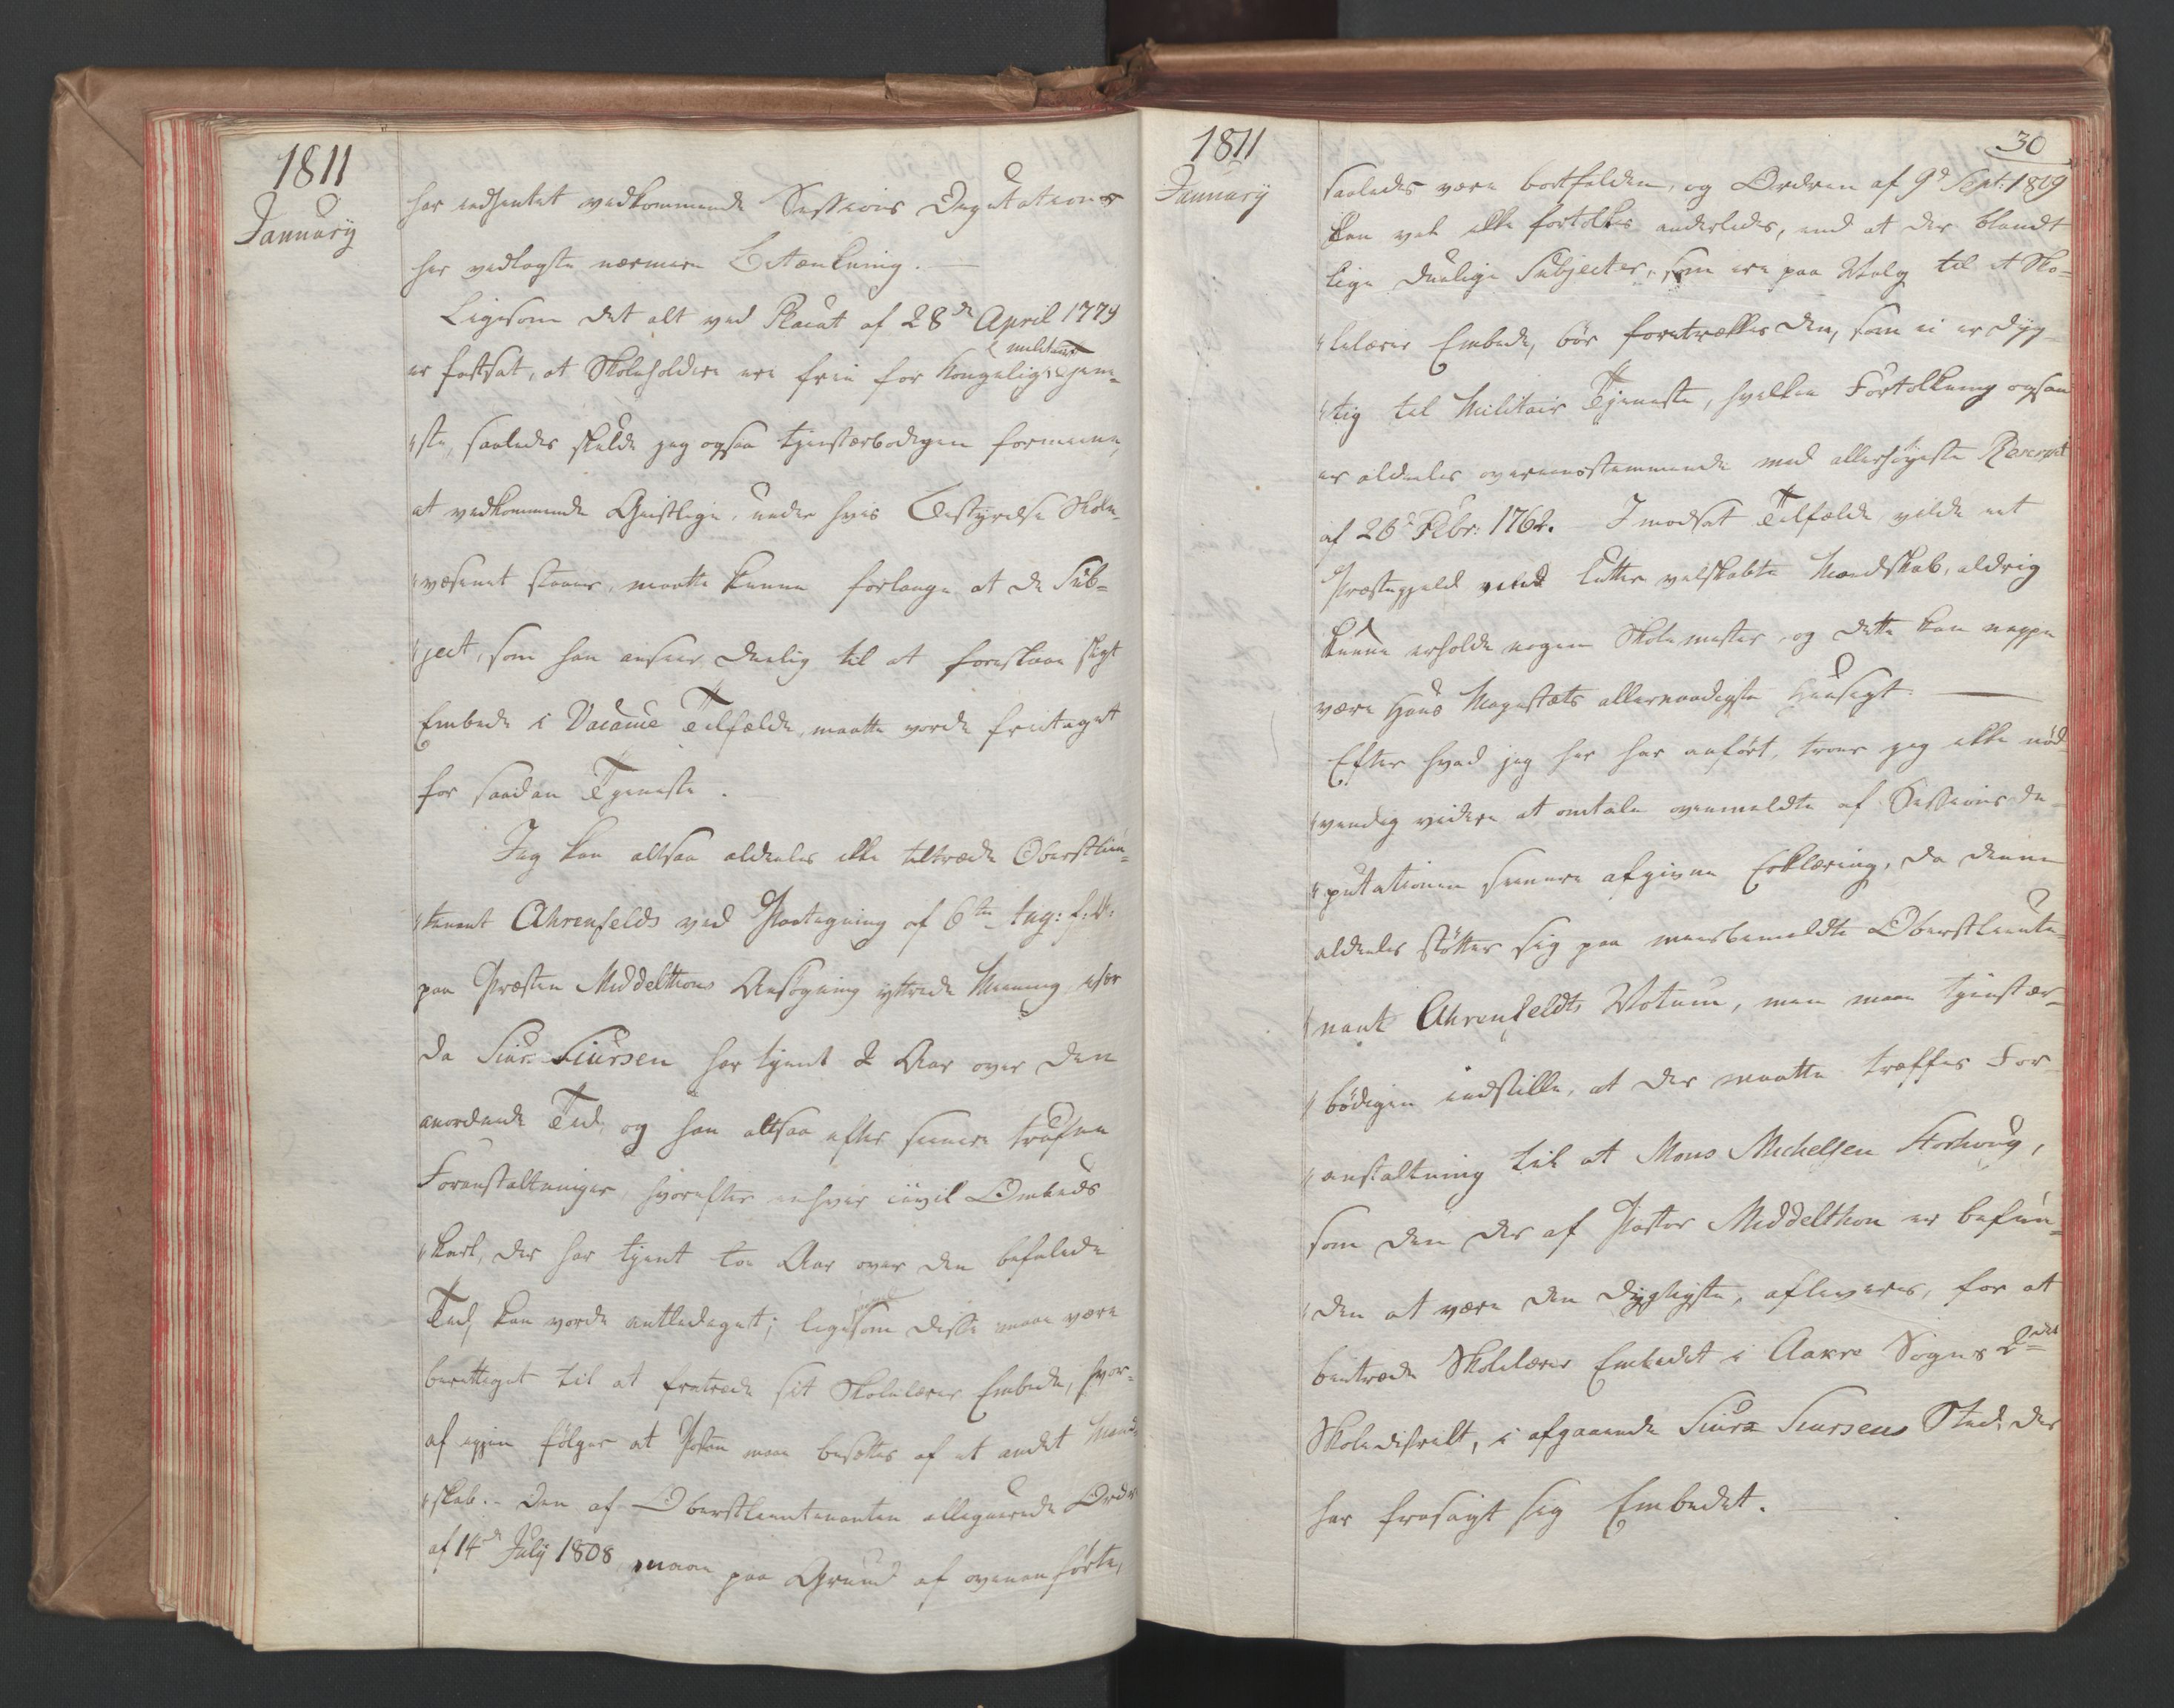 1811
Januarÿ
har indhentet vedkommende Sessions Deputations
her vedlagte nærmere Betænkning. —
Ligesom det alt ved Placat af 28de April 1779
er fastsat, at Skoleholdere ere frie for Kongelig militair Tjene-
"ste, saaledes skulde jeg ogsaa tjenstærbødigen formeene,
at vedkommende Geistlige, under hvis Bestyrelse Skole-
"væsenet staaer, maatte kunne forlange at de Sub-
"ject, som han ansaae duelig til at forestaae sligt
Embede i Vacance Tilfælde, maatte vorde fritaget
for saadan Tjeneste.
Jeg kan altsaa aldeles ikke tiltræde Oberstlieu-
"tenant Ahrenfelds ved Paategning af 6te Aug: f: A:
paa Præsten Middelthons Ansøgning yttrede Meening
da Siur Siursen har tjent 2 Aar over den
anordnede Tid, og han altsaa efter senere trufne
Foranstaltninger, hvorefter enhver civil Embeds
"karl, der har tjent to Aar over den befalede
Tid, kan vorde entlediget; ligesom disse maae være
berettiget til at fratræde sit Skolelærer Embede, hvor-
af igjen følger at Posten maae besættes af et andet Mand-
"skab. - Den af Oberstlieutenanten alleguerede Ordre
af 14de July 1808 maae paa Grund af ovenanførte,
1811
Januarÿ
30
saaledes være bortfalden, og Ordren af 9de Sept: 1809
kan vel ikke fortolkes anderledes, end at der blandt
lige duelige Subjecter, som ere paa Valg til et Sko-
"lelærer Embede, bør foretrækkes den, som ei er dyg-
"tig til Militair Tjeneste, hvilken Fortolkning ogsaa
er aldeles overeensstemmende med allerhøyeste Rescript
af 26de Febr: 1762. I modsat Tilfælde vilde et
Præstegjeld med lutter velskabte Mandskab, aldrig
kunne erholde nogen Skolemester, og dette kan neppe
være Hans Majestæts allernaadigste Hensigt. —
Efter hvad jeg her har anført, troer jeg ikke nød-
"vendig videre at omtale ovenmeldte af Sessions De-
"putationen senere afgivne Erklæring, da denne
aldeles støtter sig paa meerbemeldte Oberstlieute-
"nant Ahrenfeldts Votum, men maae tjenstær-
"bødigen indstille, at der maatte træffes For-
"anstaltning til at Mons Michelsen Storhoug,
som den der af Pastor Middelthon er befun-
"den at være den dygtigste, afleveres, for at
betræde Skolelærer Embedet i Aakre Sogns 2det
Skoledistrikt, i afgaaende Siur Siursens Sted, der
har frasagt sig Embedet.